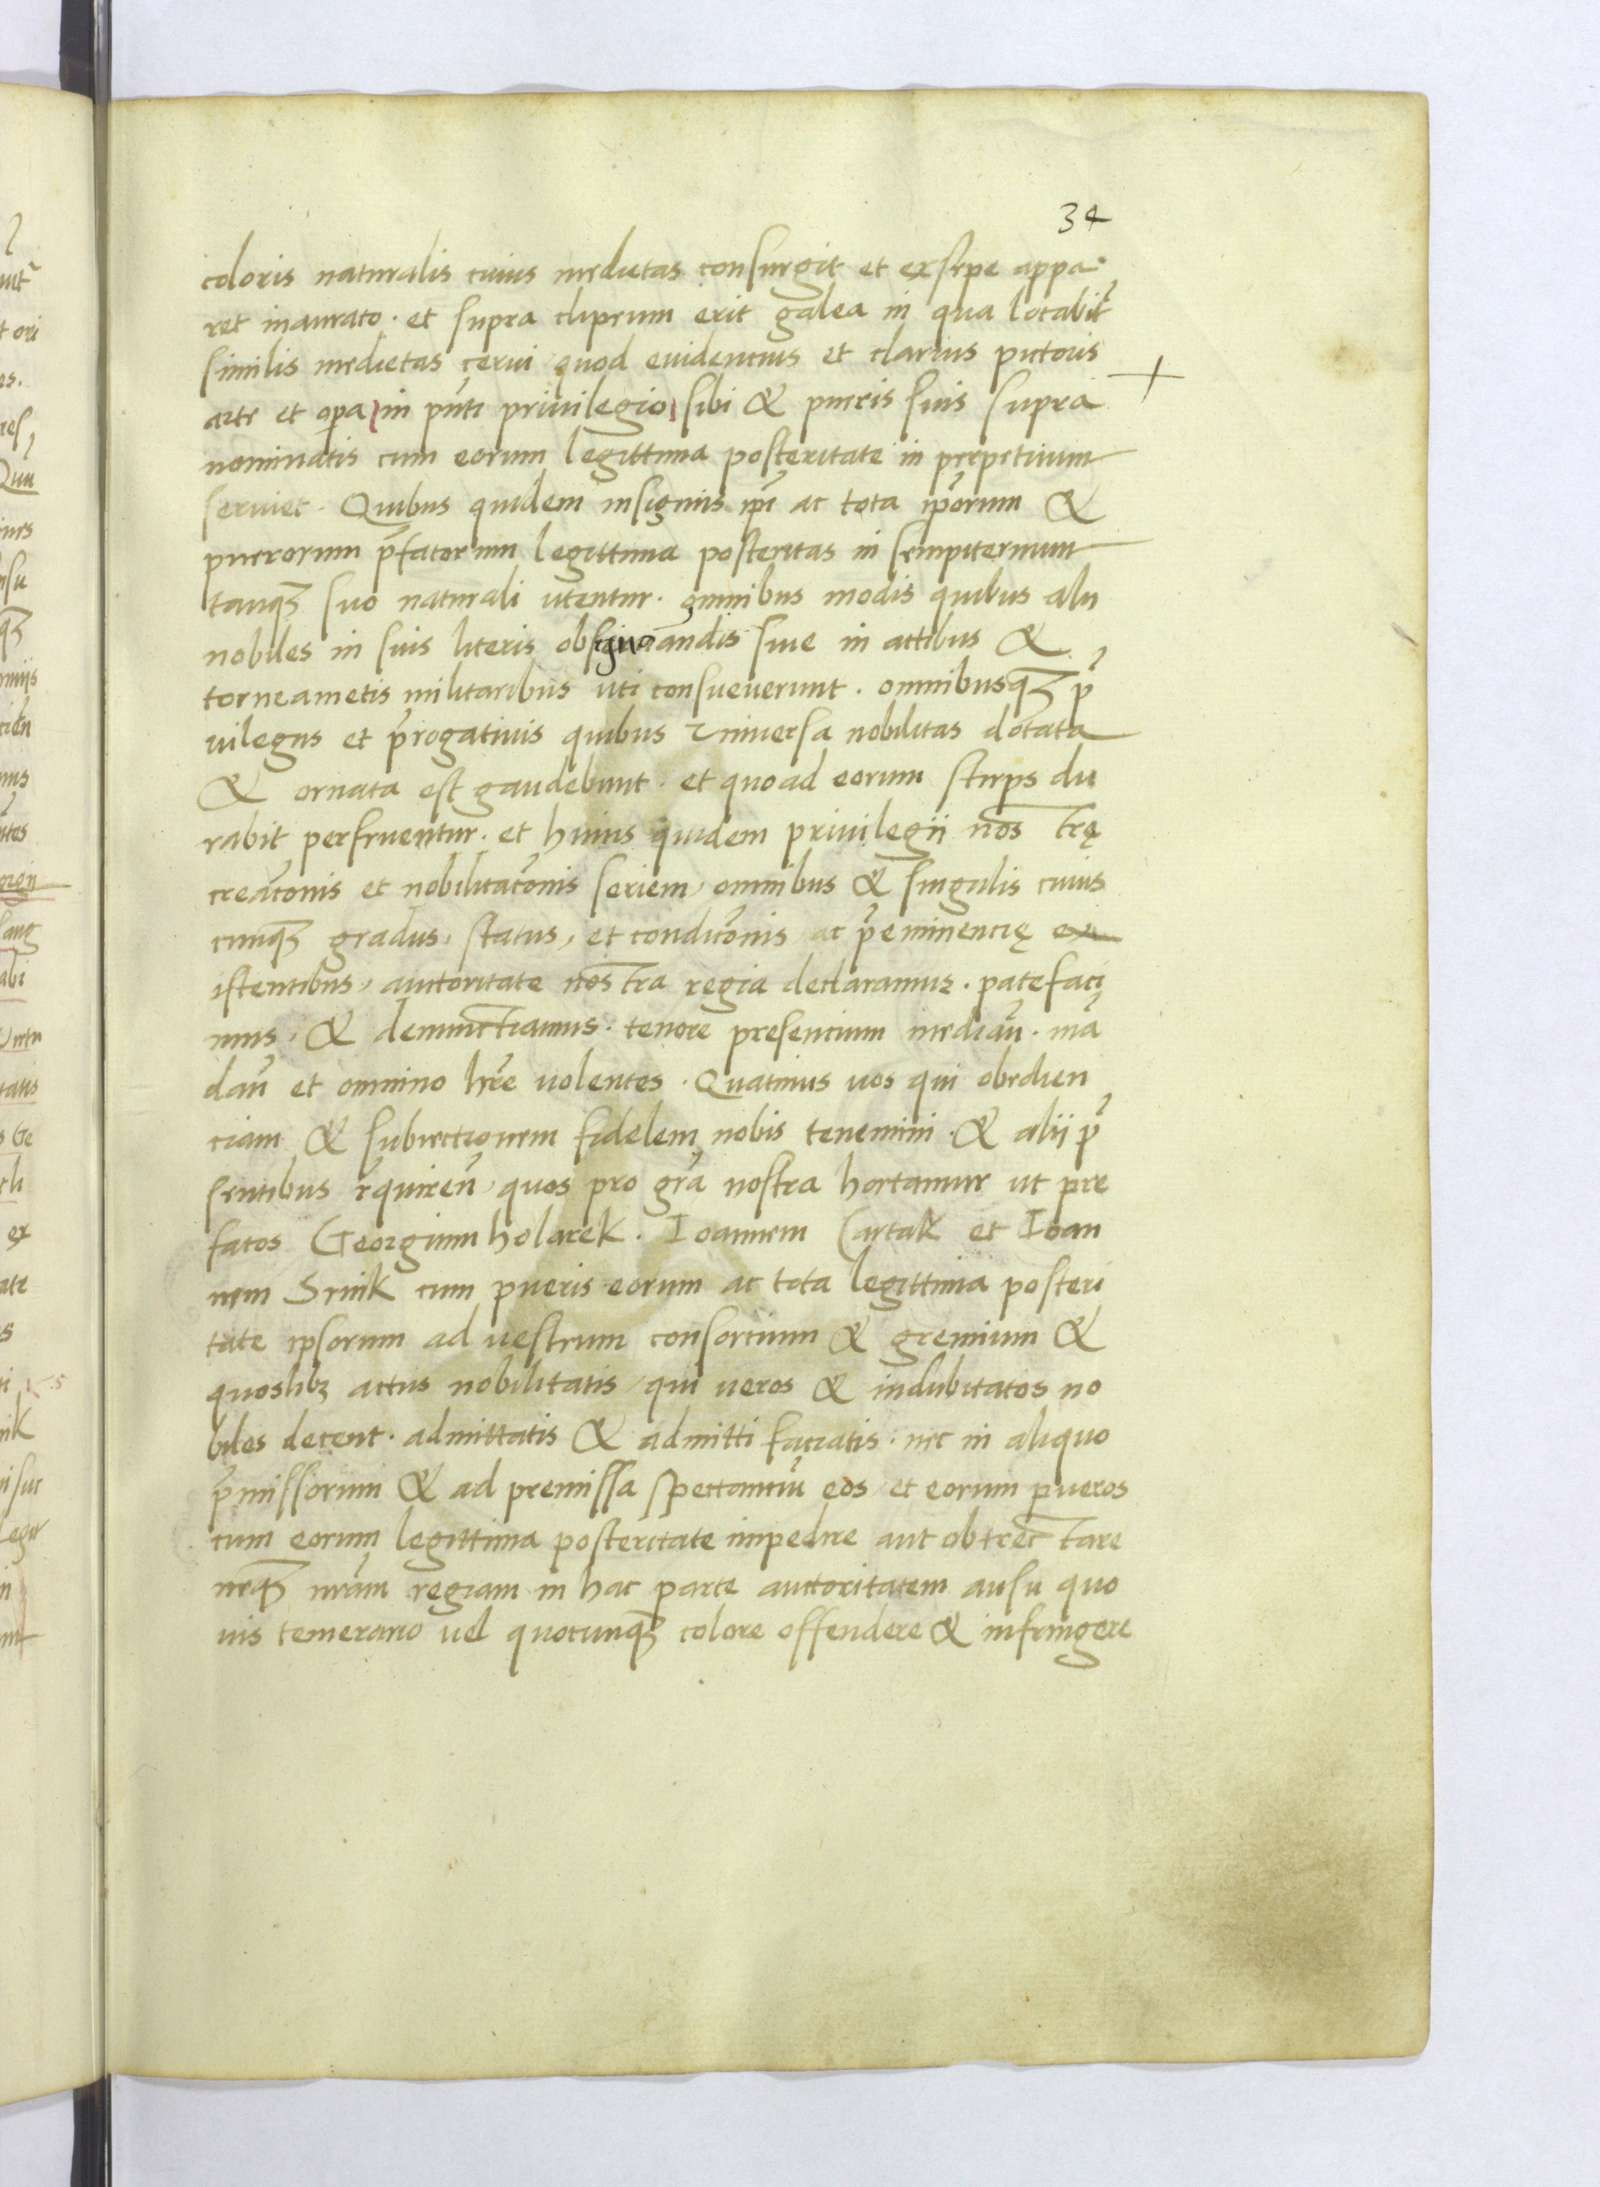 34
coloris naturalis cuius medietas consurgit et ex sepe appa
ret inaurato · et supra clipeum erit galea in qua locabit̃
similis medietas cervi quod evidencius et clarius pictoris
arte et opa in pñti privilegio sibi & pueris suis supra
nominatis cum eorum legittima posteritate in perpetuum
serviet · Quibus quidem insigniis ipi̅ ac tota ip̅orum &
puerorum p̅fatorum legittima posteritas in sempiternum
tanqꝫ suo naturali utentur · omnibus modis quibus alii
nobiles in suis literis obsignandis sive in actibus &
torneametis militaribus uti consueverunt · omnibusqꝫ p̅
vilegiis et p̅rogativis quibus universa nobilitas dotata
& ornata est gaudebunt · et quoad eorum stirps du
rabit perfruentur · et huius quidem privilegii nos trę
creac̃onis et nobilitac̃onis seriem, omnibus & singulis cuius
cunqꝫ gradus, status, et condic̃onis ac p̅eminencię ex
istentibus, auctoritate nostra regia declaramus · patefaci
mus, & denunctiamus · tenore presencium mediañ · mã
dañ et omnino hr̃e volentes · Quatinus vos qui obedien
ciam & subiectionem fidelem nobis tenemini · & alii p̅
sentibus r̃quireñ, quos pro gr̃a nostra hortamur ut pre
fatos Georgium holacek · Ioannem Cartak et Ioan
nem Srnik cum pueris eorum ac tota legittima posteri
tate ipsorum ad vestrum consorcium & gremium &
quoslibꝫ actus nobilitatis, qui veros & indubitatos no
biles decent · admittatis & admitti faciatis · nec in aliquo
p̅missorum & ad premissa spectanciũ eos et eorum pueros
cum eorum legittima posteritate impedire aut obtrectare
neqꝫ nr̃am regiam in hac parte auctoritatem ausu quo
vis temerario vel quocunqꝫ colore offendere & infringere